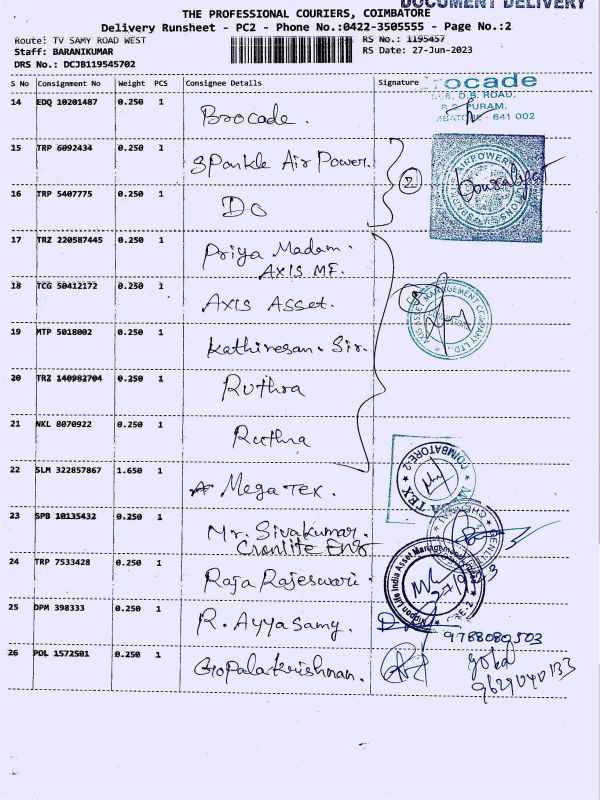 DOCUMENT DELIVERY
THE PROFESSIONAL COURIERS, COIMBATORE
Delivery Runsheet - PC2 - Phone No.:0422-3505555 - Page No.:2
Route: TV SAMY ROAD WEST
RS No.: 1195457
Staff: BARANIKUMAR
RS Date: 27-Jun-2023
DRS No.: DCJB119545702
S No Consignment No Weight PCS Consignee Details Signature
14 EDQ 10201487 0.250 1 Brocade.
ocade
D.B. ROAD,
R.S. PURAM,
641 002
15 TRP 6092434 0.250 1 Sparkle Air Power.
16 TRP 5407775 0.250 1 Do
2
17 TRZ 220587445 0.250 1 Priya Madam.
AXIS MF.
18 TCG 50412172 0.250 1 Axis Asset.
AXIS ASSET MANAGEMENT COMPANY LTD.
19 MTP 5018002 0.250 1 Kathiresan. Sir.
20 TRZ 140982704 0.250 1 Ruthra
21 NKL 8070922 0.250 1 Ruthra
22 SLM 322857867 1.650 1 Mega Tex.
COIMBATORE-2
TEX
23 SPB 10135432 0.250 1 Mr. Sivakumar.
Cronlite Eng
24 TRP 7533428 0.250 1 Raja Rajeswari.
Nippon Life India Asset Management
25 DPM 398333 0.250 1 R. Ayyasamy.
9788080503
26 PDL 1572501 0.250 1 Gopalakrishnan.
9629040133